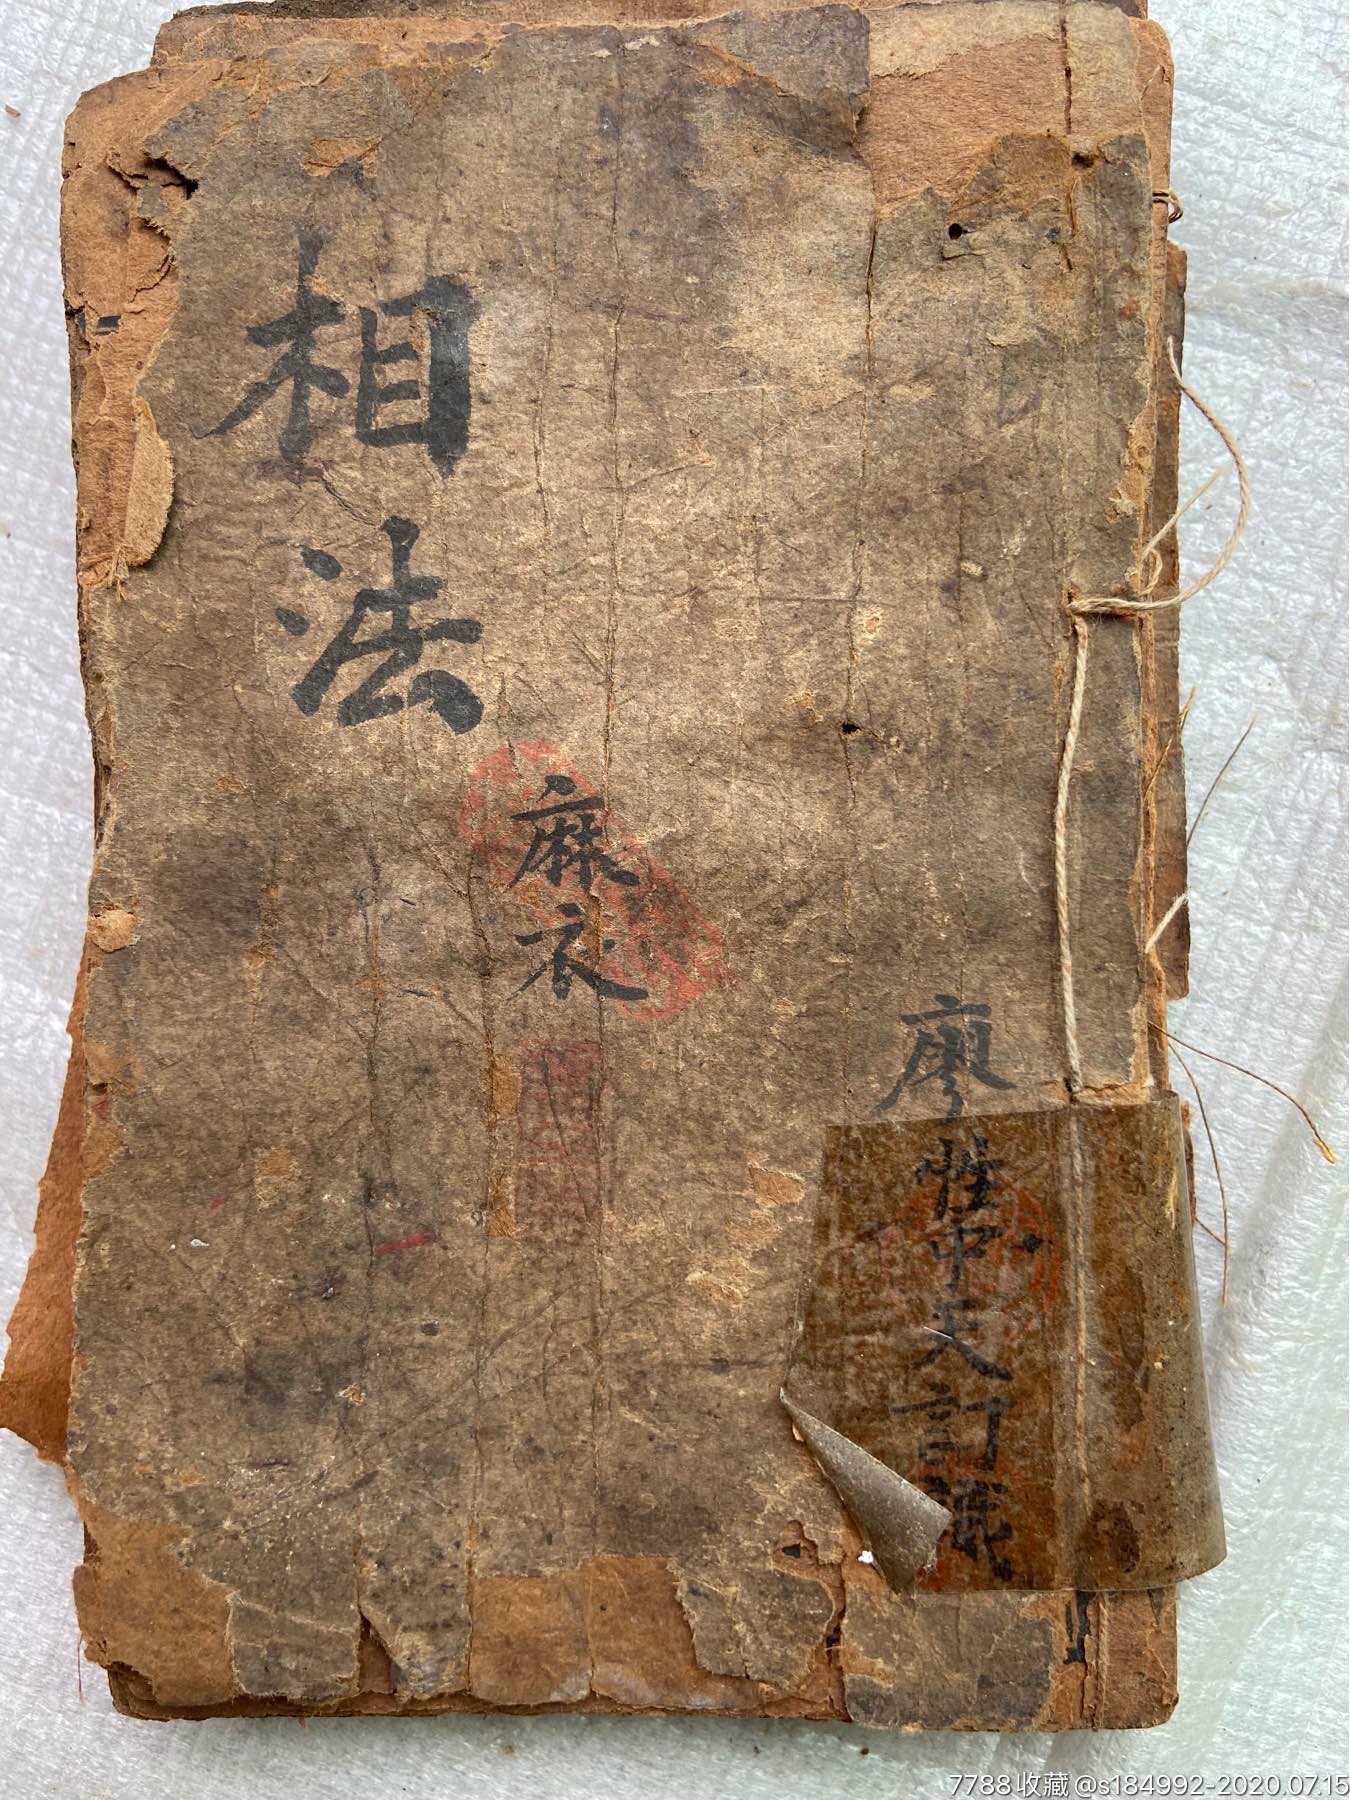 廖性中天訂識
麻衣
相法
7788收藏 @s184992-2020.07.15